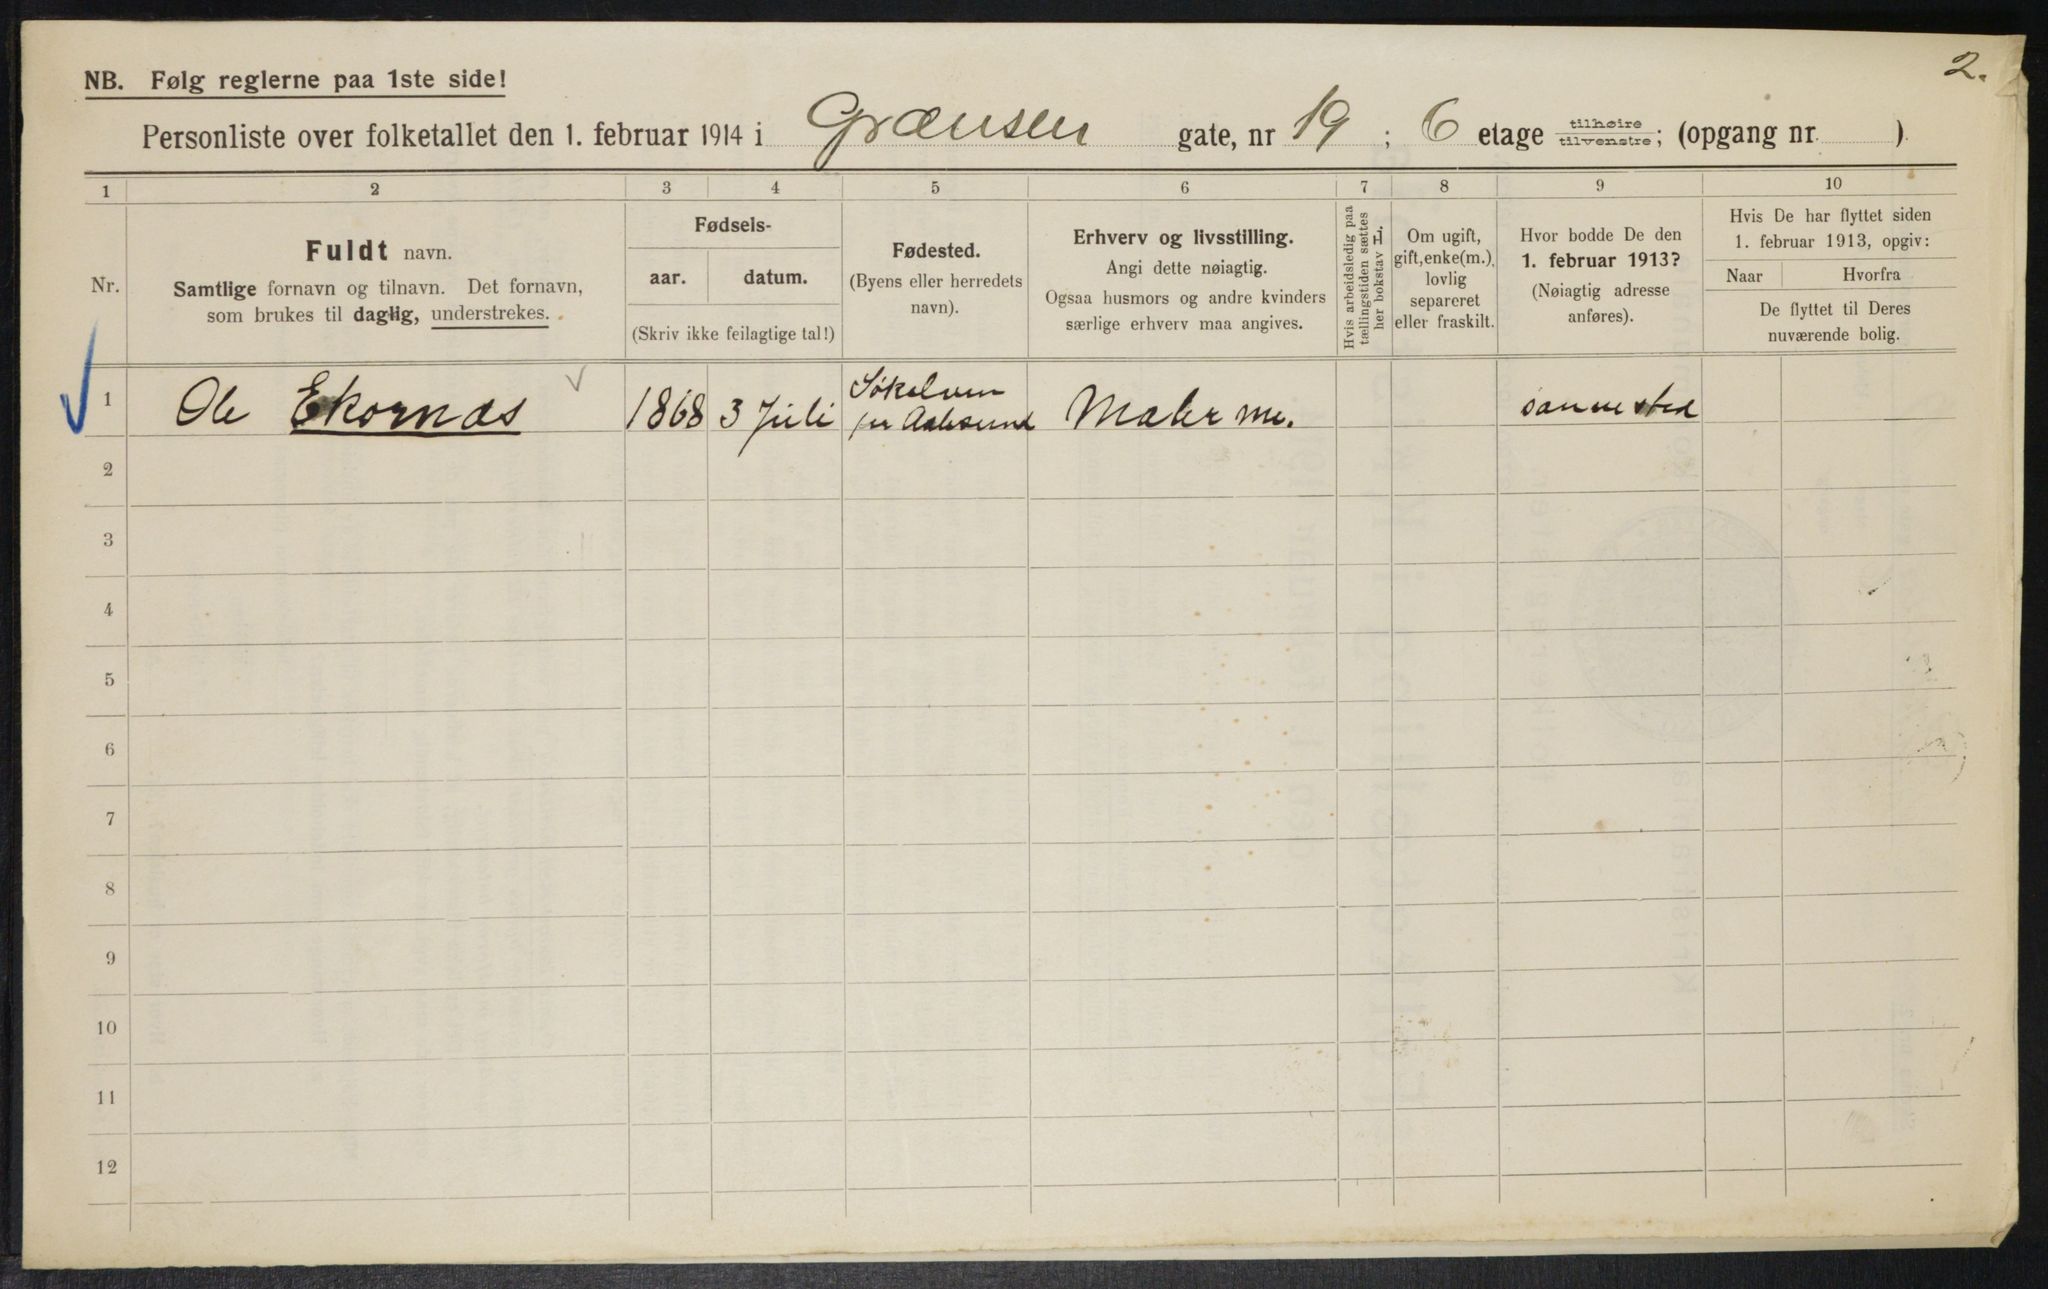 2.
NB. Følg reglerne paa 1ste side!
Personliste over folketallet den 1. februar 1914 i Grænsen gate, nr 19 ; 6 etage tilhøire/tilvenstre; (opgang nr. )
1 2 3 4 5 6 7 8 9 10
Nr.
Fuldt navn.
Samtlige fornavn og tilnavn. Det fornavn,
som brukes til daglig, understrekes.
Fødsels-
aar. datum.
(Skriv ikke feilagtige tal!)
Fødested.
(Byens eller herredets
navn).
Erhverv og livsstilling.
Angi dette nøiagtig.
Ogsaa husmors og andre kvinders
særlige erhverv maa angives.
Hvis arbeidsledig paa
tællingstiden sættes
her bokstav L.
Om ugift,
gift, enke(m.),
lovlig
separeret
eller fraskilt.
Hvor bodde De den
1. februar 1913?
(Nøiagtig adresse
anføres).
Hvis De har flyttet siden
1. februar 1913, opgiv:
Naar Hvorfra
De flyttet til Deres
nuværende bolig.
1 Ole Ekornæs 1868 3 Juli Søkelven pr Aalesund Maler m. sammested
2
3
4
5
6
7
8
9
10
11
12